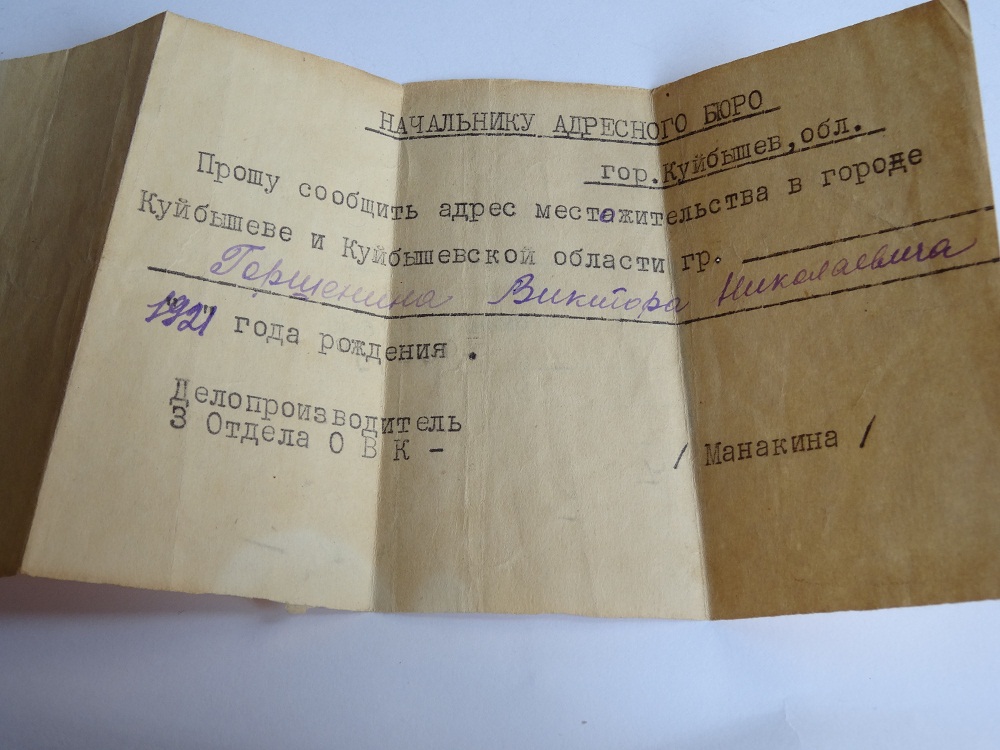 НАЧАЛЬНИКУ АДРЕСНОГО БЮРО
гор.Куйбышев,обл.
Прошу сообщить адрес местожительства в городе
Куйбышеве и Куйбышевской области гр.
Горшенина Виктора Николаевича
1921 года рождения .
Делопроизводитель
3 Отдела О В К - / Манакина /